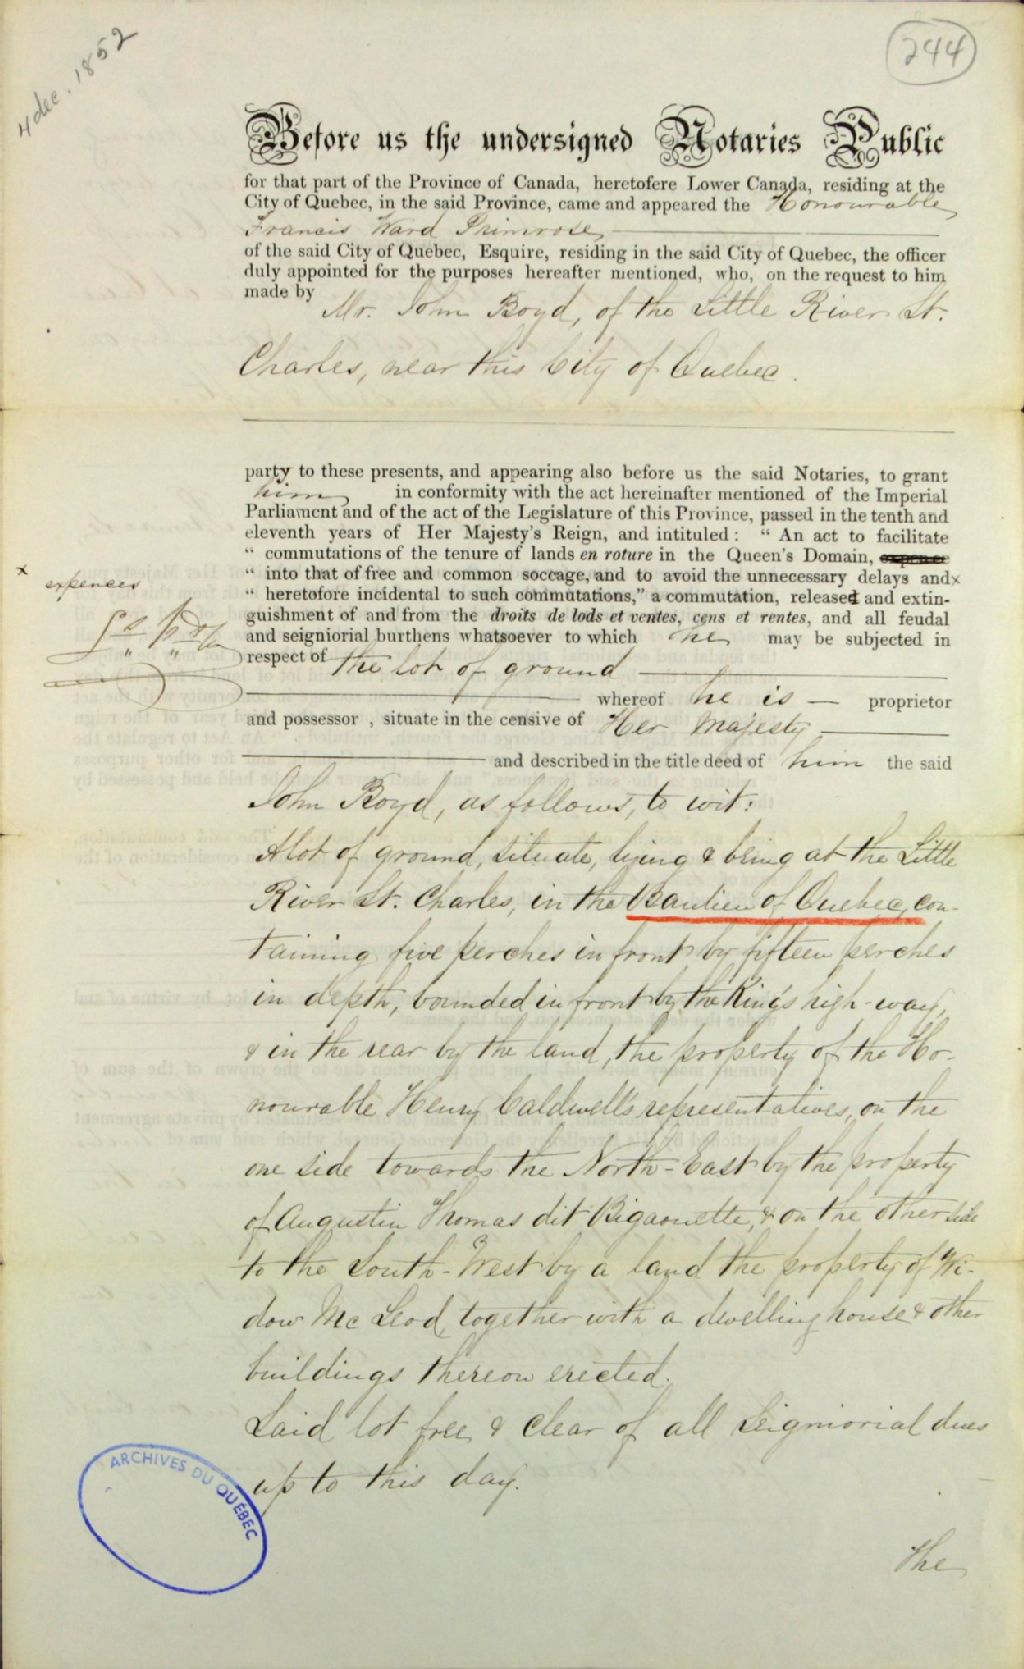 4 dec. 1852
244
Before us the undersigned Notaries Public
for that part of the Province of Canada, heretofere Lower Canada, residing at the
City of Quebec, in the said Province, came and appeared the Honourable
Francis Ward Primrose,
of the said City of Quebec, Esquire, residing in the said City of Quebec, the officer
duly appointed for the purposes hereafter mentioned, who, on the request to him
made by Mr. John Boyd, of the Little River St.
Charles, near this City of Quebec.
party to these presents, and appearing also before us the said Notaries, to grant
him in conformity with the act hereinafter mentioned of the Imperial
Parliament and of the act of the Legislature of this Province, passed in the tenth and
eleventh years of Her Majesty's Reign, and intituled: " An act to facilitate
" commutations of the tenure of lands en roture in the Queen's Domain,
" into that of free and common soccage, and to avoid the unnecessary delays and x
x expences
" heretofore incidental to such commutations," a commutation, released and extin-
guishment of and from the droits de lods et ventes, cens et rentes, and all feudal
and seigniorial burthens whatsoever to which he may be subjected in
respect of the lot of ground
whereof he is — proprietor
and possessor , situate in the censive of Her Majesty
and described in the title deed of him the said
John Boyd, as follows, to wit:
A lot of ground, situate, lying & being at the Little
River St. Charles, in the Banlieu of Quebec, con-
taining five perches in front by fifteen perches
in depth, bounded in front by the King's high-way,
& in the rear by the land, the property of the Ho-
nourable Henry Caldwell's representatives, on the
one side towards the North-East by the property
of Augustin Thomas dit Bigaouette, & on the other side
to the South-West by a land the property of Wi-
dow Mc Leod, together with a dwelling house & other
buildings thereon erected.
Said lot free & clear of all Seigniorial dues
up to this day.
ARCHIVES DU QUÉBEC
the